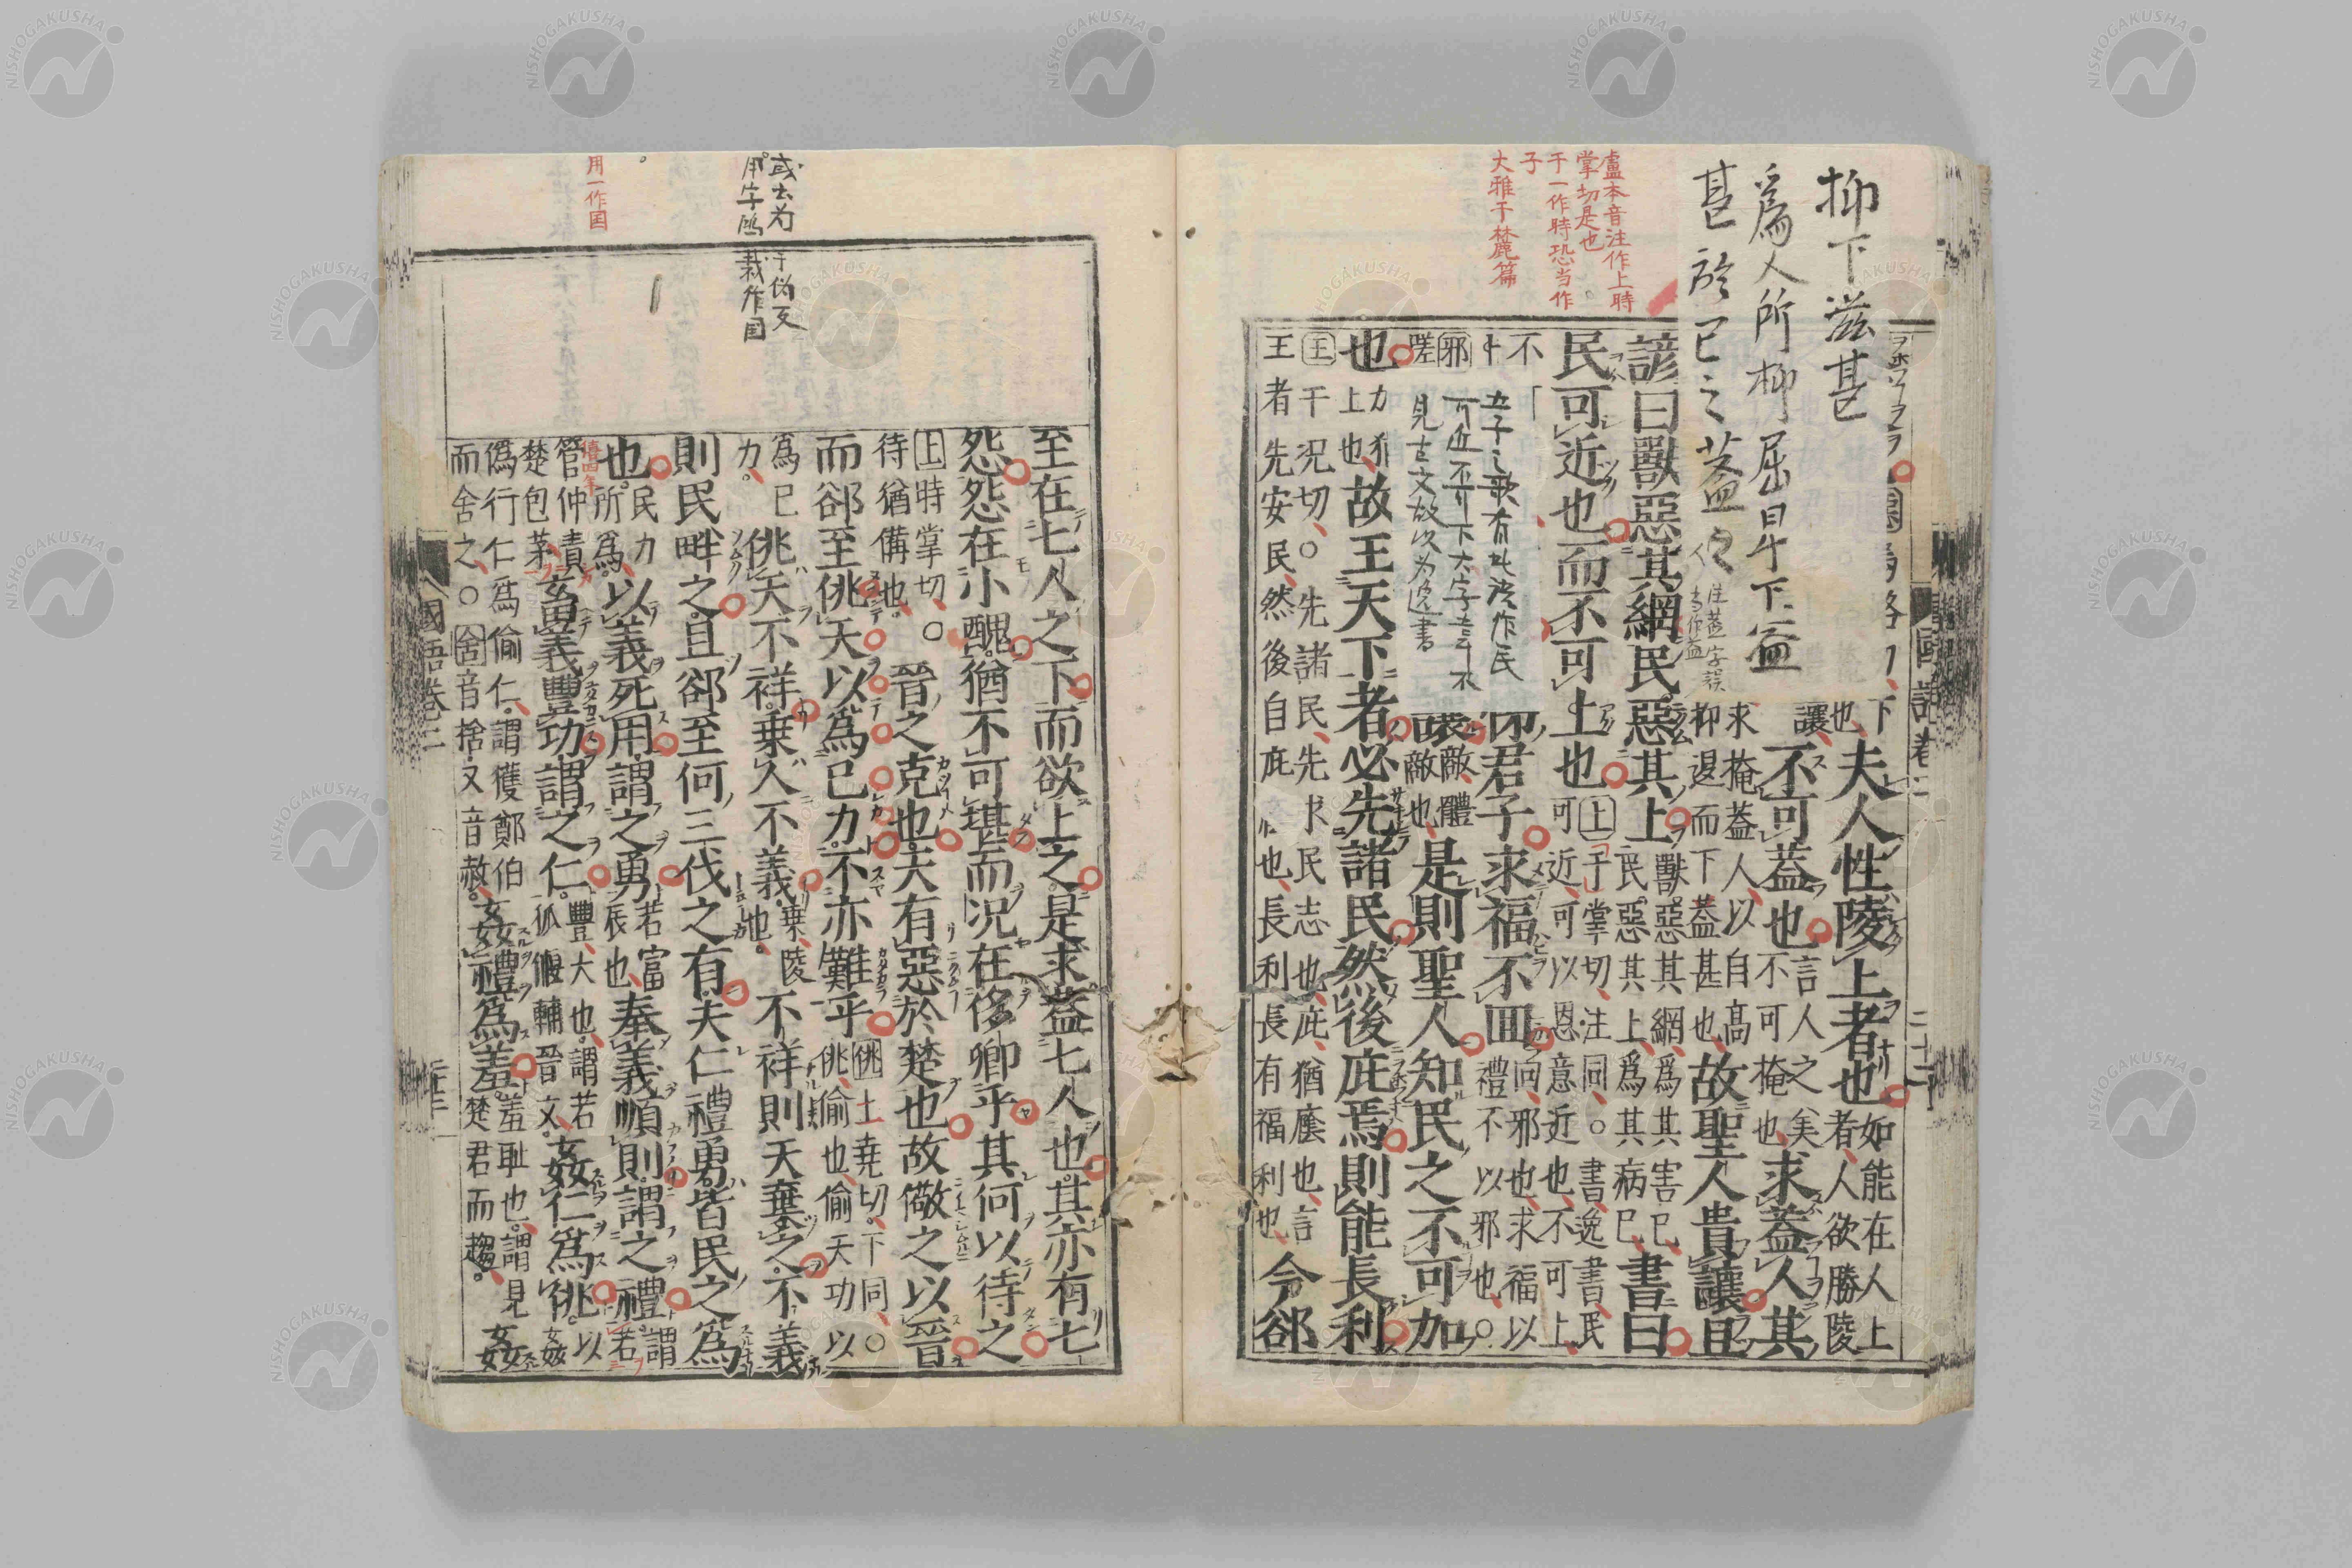 抑下滋甚
爲人所抑屈是下益
甚於已之蓋
盧本音注作上時
掌切是也
于一作時恐当作
子
大雅干麓篇
國語卷二
夫人性陵上者也如能在人上
者人欲勝陵
讓不可蓋也言人之美
不可掩也求蓋人其
求掩蓋人以自高
抑退而下益甚也故聖人貴讓且
諺曰獸惡其網民惡其上獸惡其網爲其害已
民惡其上爲其病已書曰
民可近也而不可上也上于掌切注同○書逸書民
可近可以恩意近也不可上
五子之歌有此語作民
可近不可下六字
見古文故以为逸書
君子求福不回回邪也求福以
禮不以邪也○
是則聖人知民之不可加
也故王天下者必先諸民然後庇焉則能長利
王干况切○先諸民先求民志也庇猶廕也言
王者先安民然後自庇也長利長有福利也今郤
或云为于偽反
用字鴎裁作国
用一作国
至在七人之下而欲上之是求蓋七人也其亦有七
怨怨在小醜猶不可堪而况在侈卿乎其何以待之
上時掌切○
待猶備也晉之克也天有惡於楚也故儆之以晉
而郤至佻天以爲已力不亦難乎佻土尭切下同○
佻偷也偷天功以
爲已
力佻天不祥乘人不義乗陵
也不祥則天棄之不義
則民畔之且郤至何三伐之有夫仁禮勇皆民之爲
也民力
所爲以義死用謂之勇若富
辰也奉義順則謂之禮謂
若
僖四年
管仲責
楚包茅畜義豐功謂之仁豐大也謂若
狐偃輔晉文姦仁爲佻以
姦
僞行仁爲偷仁謂獲鄭伯
而舍之○舍音捨又音赦姦禮爲羞羞耻也謂見
楚君而趨姦
國語卷二